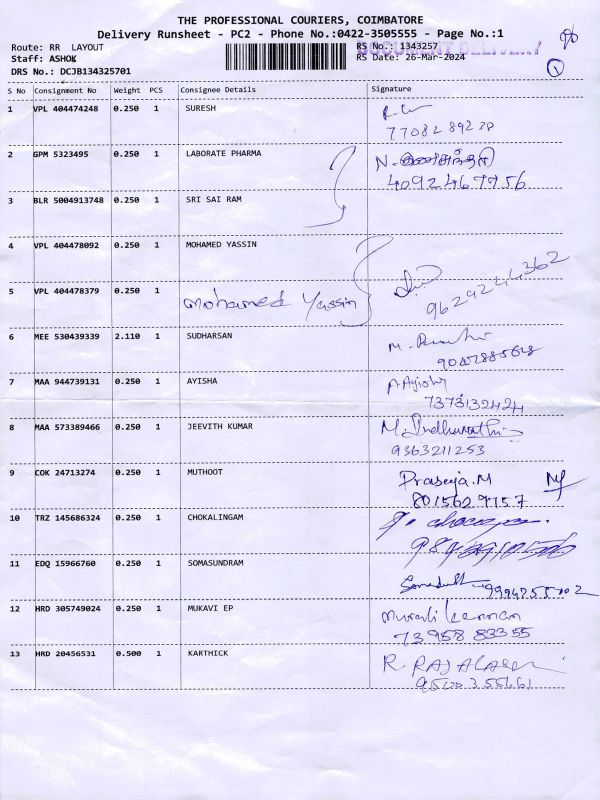 THE PROFESSIONAL COURIERS, COIMBATORE
Delivery Runsheet - PC2 - Phone No.:0422-3505555 - Page No.:1
Route: RR LAYOUT
Staff: ASHOK
DRS No.: DCJB134325701
RS No.: 1343257
RS Date: 26-Mar-2024
DOCUMENT DELIVERY
1
S No Consignment No Weight PCS Consignee Details Signature
1 VPL 404474248 0.250 1 SURESH
77082 89238
2 GPM 5323495 0.250 1 LABORATE PHARMA N.
4092467756
3 BLR 5004913748 0.250 1 SRI SAI RAM
4 VPL 404478092 0.250 1 MOHAMED YASSIN
5 VPL 404478379 0.250 1 Mohamed Yassin
9629244362
6 MEE 530439339 2.110 1 SUDHARSAN M.
7 MAA 944739131 0.250 1 AYISHA
7373132424
8 MAA 573389466 0.250 1 JEEVITH KUMAR M.
9363211253
9 COK 24713274 0.250 1 MUTHOOT Praseeja.M
8015629757
10 TRZ 145686324 0.250 1 CHOKALINGAM
11 EDQ 15966760 0.250 1 SOMASUNDRAM
12 HRD 305749024 0.250 1 MUKAVI EP Murali Kannan
73958 83355
13 HRD 20456531 0.500 1 KARTHICK R.